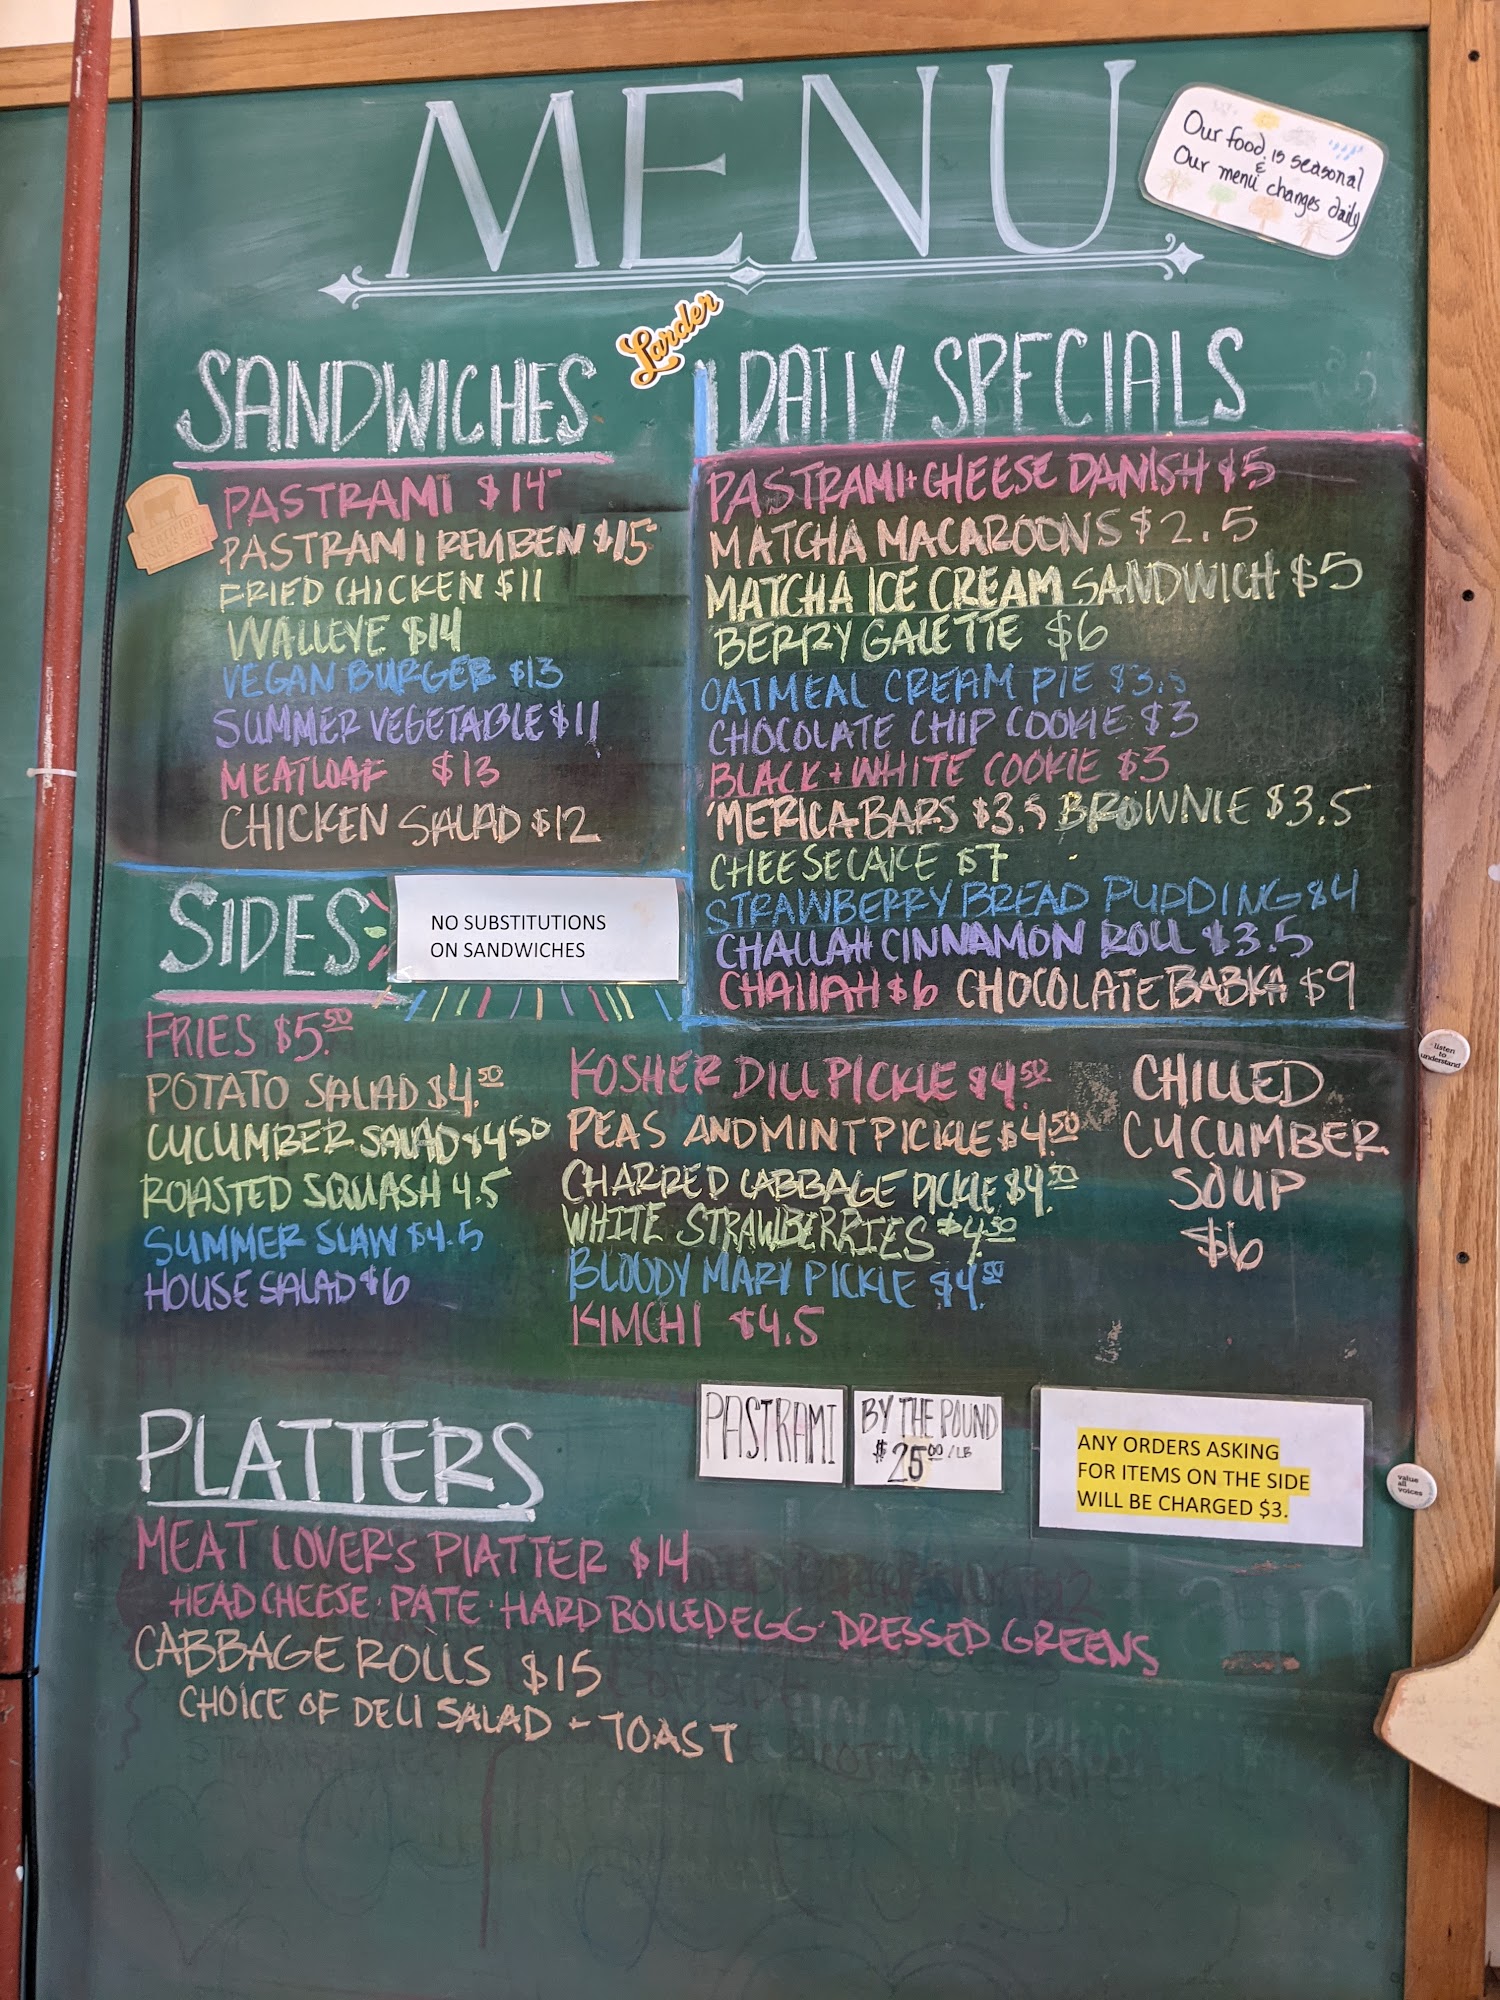 MENU
Our food is seasonal
&
Our menu changes daily
Larder
SANDWICHES
PASTRAMI $14
PASTRAMI REUBEN $15
FRIED CHICKEN $11
WALLEYE $14
VEGAN BURGER $13
SUMMER VEGETABLE $11
MEATLOAF $13
CHICKEN SALAD $12
DAILY SPECIALS
PASTRAMI+CHEESE DANISH $5
MATCHA MACAROONS $2.5
MATCHA ICE CREAM SANDWICH $5
BERRY GALETTE $6
OATMEAL CREAM PIE $3.5
CHOCOLATE CHIP COOKIE $3
BLACK+WHITE COOKIE $3
'MERICA BARS $3.5 BROWNIE $3.5
CHEESECAKE $7
STRAWBERRY BREAD PUDDING $4
CHALLAH CINNAMON ROLL $3.5
CHALLAH $6 CHOCOLATE BABKA $9
SIDES
NO SUBSTITUTIONS
ON SANDWICHES
FRIES $5.50
POTATO SALAD $4.50
CUCUMBER SALAD $4.50
ROASTED SQUASH 4.5
SUMMER SLAW $4.5
HOUSE SALAD $6
KOSHER DILL PICKLE $4.50
PEAS AND MINT PICKLE $4.50
CHARRED CABBAGE PICKLE $4.50
WHITE STRAWBERRIES $4.50
BLOODY MARY PICKLE $4.50
KIMCHI $4.5
CHILLED
CUCUMBER
SOUP
$6
listen
to
understand
PASTRAMI
BY THE POUND
$25.00/LB
ANY ORDERS ASKING
FOR ITEMS ON THE SIDE
WILL BE CHARGED $3.
value
all
voices
PLATTERS
MEAT LOVER'S PLATTER $14
HEAD CHEESE · PATE · HARD BOILED EGG · DRESSED GREENS
CABBAGE ROLLS $15
CHOICE OF DELI SALAD + TOAST